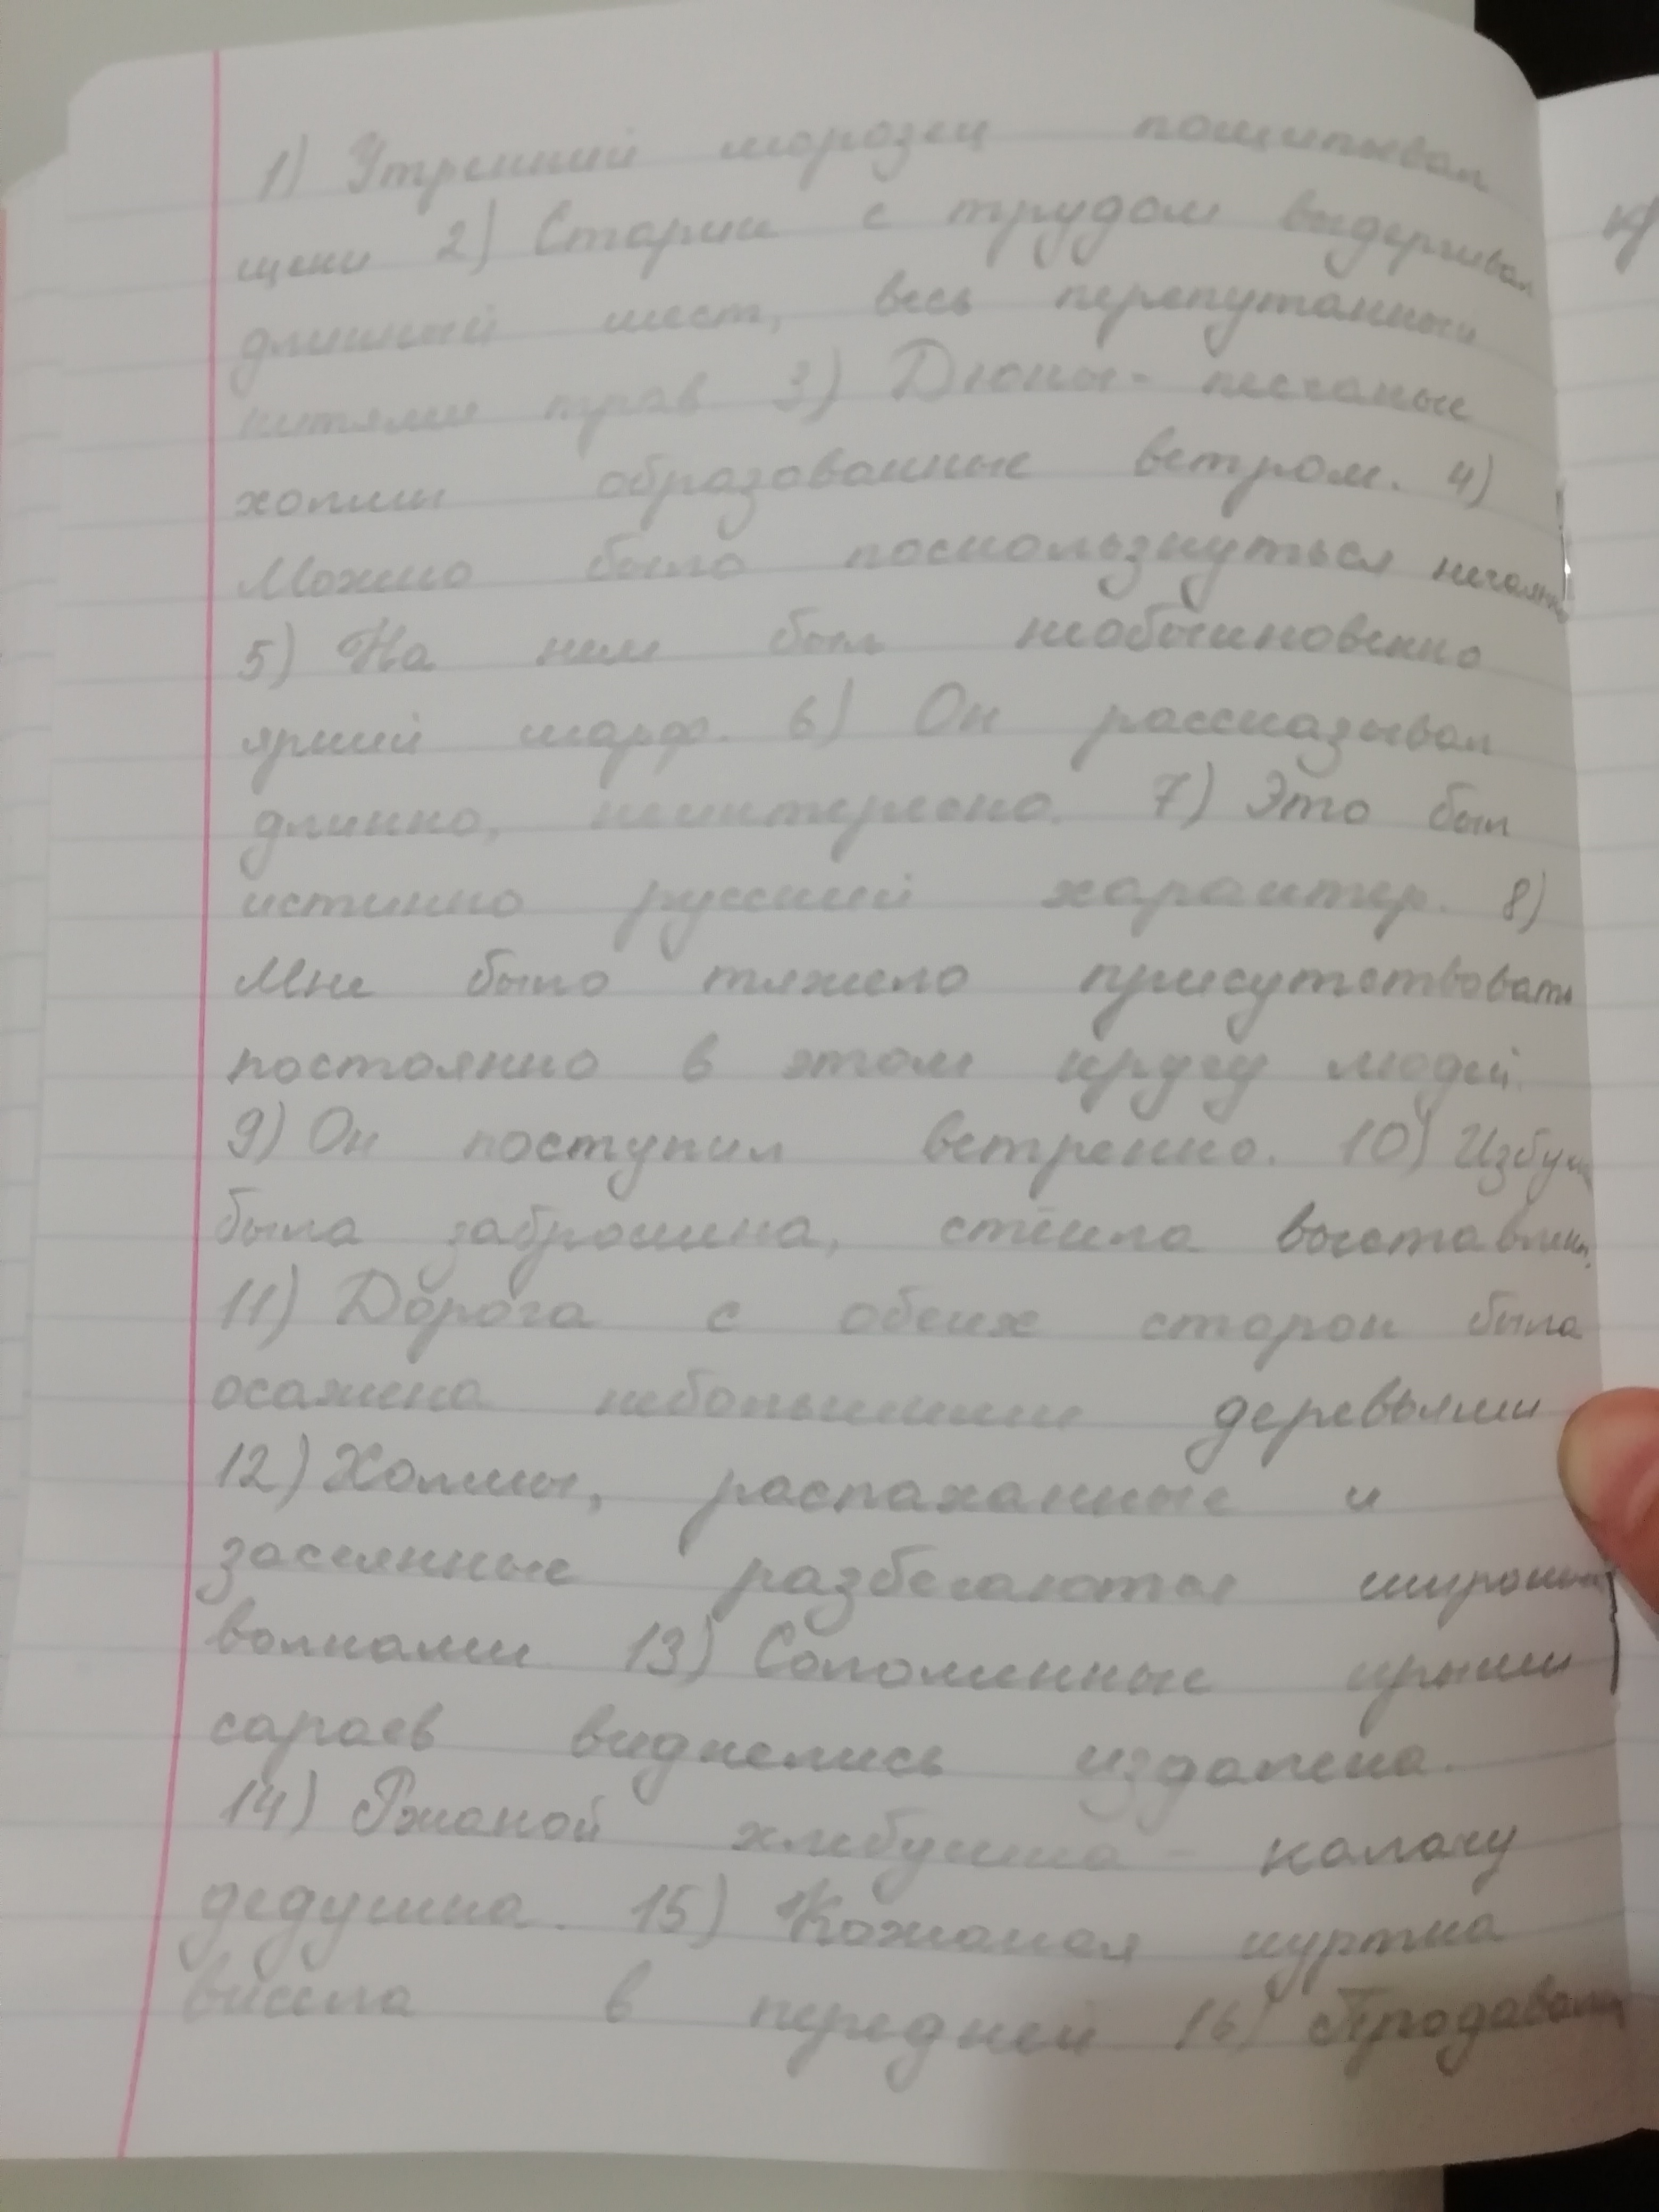 1) Утренний морозец пощипывал
щеки 2) Старик с трудом выдергивал
длинный шест, весь перепутанный
нитями трав 3) Дюны - песчаные
холмы образованные ветром. 4)
Можно было поскользнуться нечаянно
5) На нем был необыкновенно
яркий шарф. 6) Он рассказывал
длинно, неинтересно. 7) Это был
истинно русский характер. 8)
Мне было тяжело присутствовать
постоянно в этом кругу людей.
9) Он поступил ветренно. 10) Избушка
была заброшена, стёкла выставлены,
11) Дорога с обеих сторон была
осажена небольшими деревьями
12) Холмы, распаханные и
засеянные разбегаются широкими
волнами 13) Соломенные крыши
сараев виднелись издалека.
14) Ржаной хлебушко - калачу
дедушка. 15) Кожаная куртка
висела в передней 16) Продавали